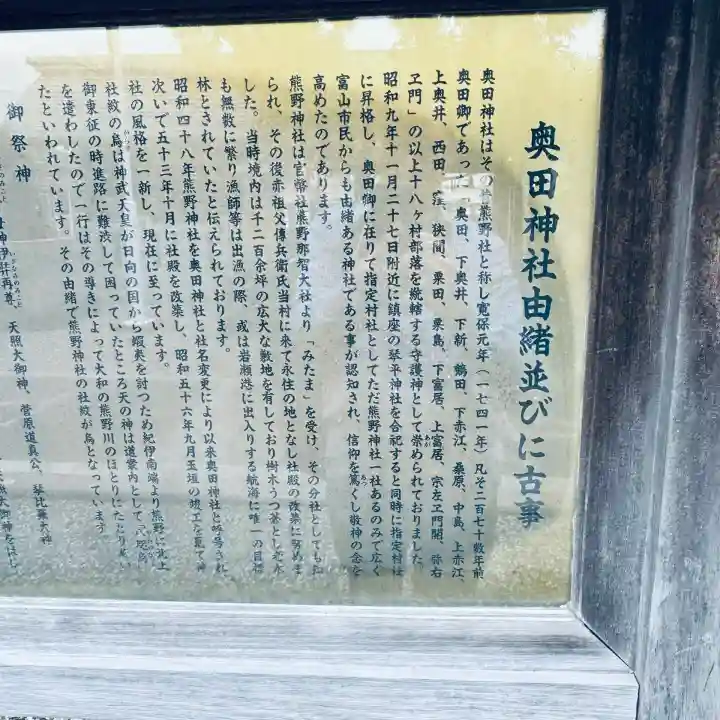 奥田神社由緒並びに古事
奥田神社はその昔熊野社と称し寛保元年(一七四一年)凡そ二百七十数年前
奥田郷であった「奥田、下奥井、下新、鶴田、下赤江、桑原、中島、上赤江、
上奥井、西田、窪、狭間、粟田、粟島、下富居、上富居、宗左ヱ門開、弥右
ヱ門」の以上十八ヶ村部落を統轄する守護神として崇められておりました。
昭和九年十一月二十七日附近に鎮座の琴平神社を合祀すると同時に指定村社
に昇格し、奥田郷に在りて指定村社としてただ熊野神社一社あるのみで広く
富山市民からも由緒ある神社である事が認知され、信仰を篤くし敬神の念を
高めたのであります。
熊野神社は官幣社熊野那智大社より「みたま」を受け、その分社としても
られ、その後赤祖父傳兵衛氏当村に来て永住の地となし社殿の改築に努めま
した。当時境内は千二百余坪の広大な敷地を有しており樹木うつ蒼とし老木
も無数に繁り漁師等は出漁の際、或は岩瀬港に出入りする航海に唯一の目標
林とされていたと伝えられております。
昭和四十八年熊野神社を奥田神社と社名変更により以来奥田神社と呼称され、
次いで五十三年十月に社殿を改築し、昭和五十六年九月玉垣の竣工を見て神
社の風格を一新し、現在に至っています。
社紋の烏は神武天皇が日向の国から蝦夷を討つため紀伊南端より熊野に北上
御東征の時進路に難渋して困っていたところ天の神は道案内として「八咫烏」
を遣わしたので一行はその導きによって大和の熊野川のほとりにたどり
たといわれています。その由緒で熊野神社の社紋が烏となっています
御祭神
神伊弉冉尊、天照大御神、菅原道真公、琴比羅大神